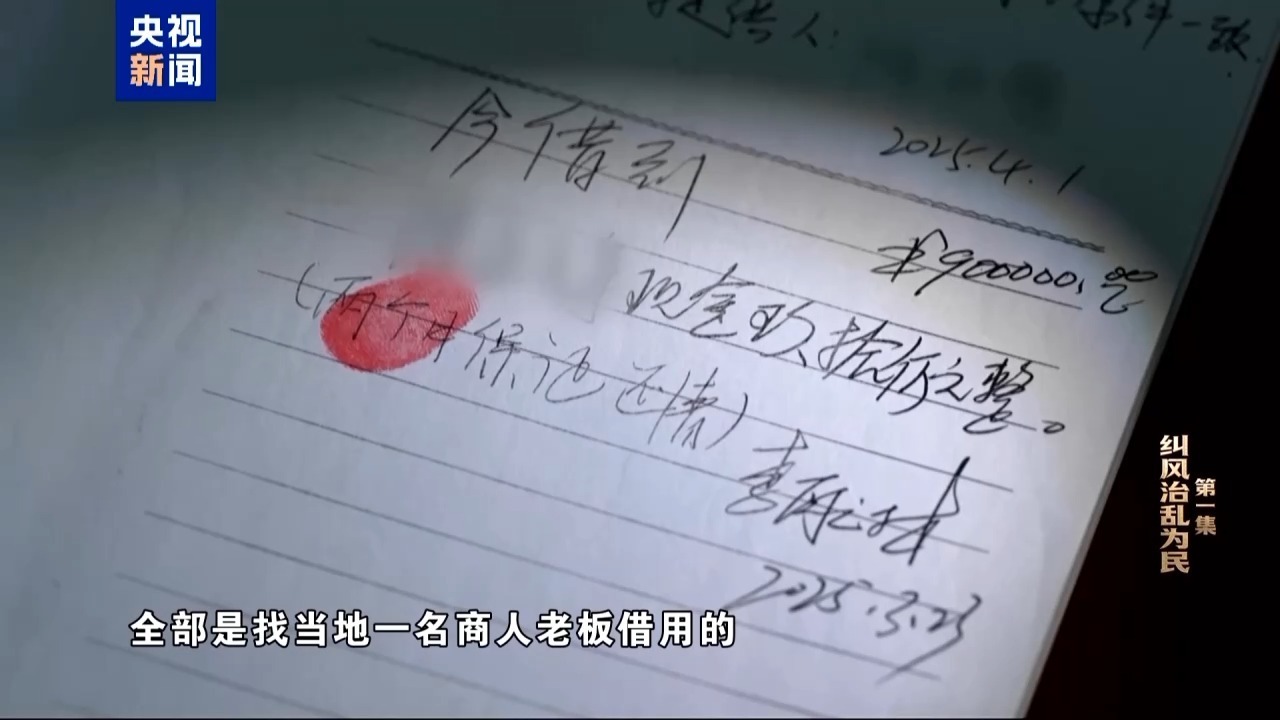 央视
新闻
提供人：
件一致.
2025.4.1
今借到
¥900000.00
现金玖拾万元整。
(两个月保证还清)
2025.3.23
第一集
纠风治乱为民
全部是找当地一名商人老板借用的